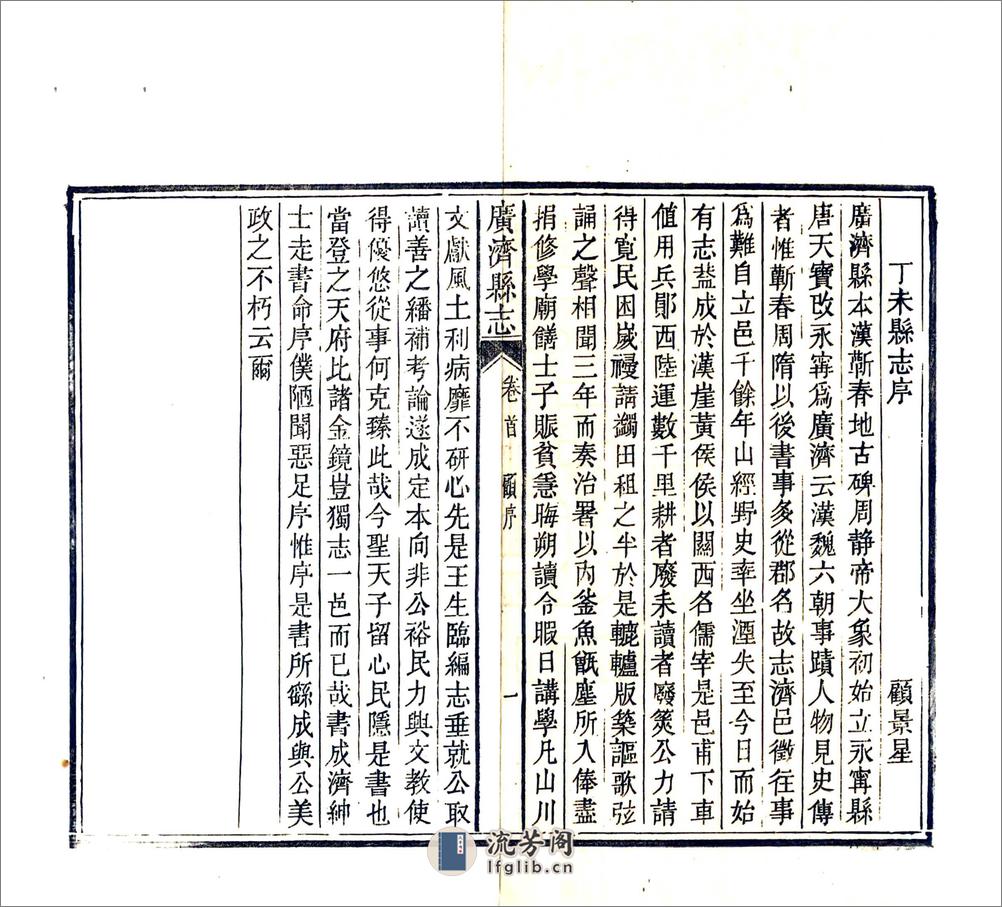 丁未縣志序
顧景星
廣濟縣本漢蘄春地古碑周静帝大象初始立永寗縣
唐天寶改永寗爲廣濟云漢魏六朝事蹟人物見史傳
者惟蘄春周隋以後書事多從郡名故志濟邑徵往事
爲難自立邑千餘年山經野史率坐湮失至今日而始
有志葢成於漢崖黃侯侯以關西名儒宰是邑甫下車
值用兵鄖西陸運數千里耕者廢耒讀者廢筴公力請
得寬民困嵗禝請蠲田租之半於是轆轤版築謳歌弦
誦之聲相聞三年而奏治署以內釜魚甑塵所入俸盡
捐修學廟饍士子賑貧憊晦朔讀令暇日講學凡山川
廣濟縣志
卷首 顧序
一
文獻風土利病靡不研心先是王生臨編志垂就公取
讀善之繙補考論遂成定本向非公裕民力與文教使
得優悠從事何克臻此哉今聖天子留心民隱是書也
當登之天府比諸金鏡豈獨志一邑而已哉書成濟紳
士走書命序僕陋聞惡足序惟序是書所繇成與公美
政之不朽云爾
流芳阁
lfglib.cn